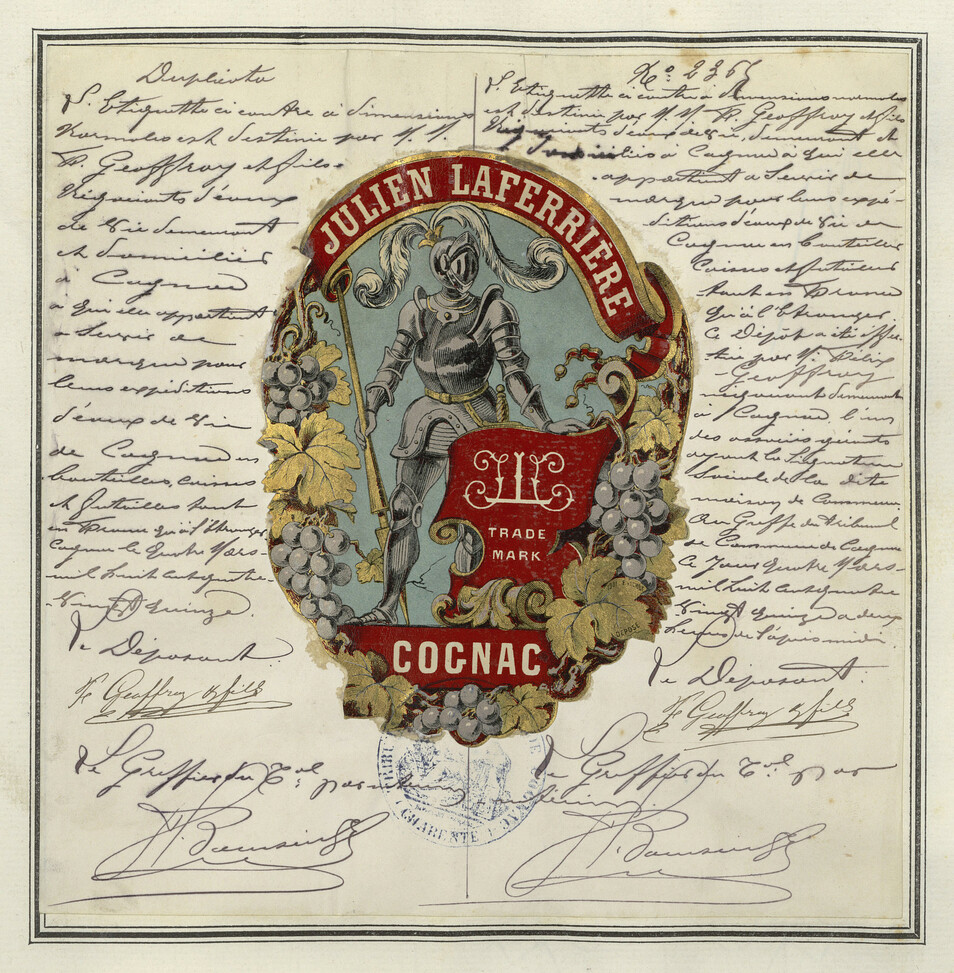 Duplicata
L'Etiquette ci contre à dimensions
Normales est destinée par M.M.
F. Geoffroy et fils
Négociants d'eaux
de Vie demeurant
et domiciliés
à Cognac
à qui elle appartient
à Servir de
marque pour
leurs expéditions
d'eaux de Vie
de Cognac en
bouteilles, caisses
et futailles tant
en France qu'à l'Etranger
Cognac le quatre Mars
mil huit cent quatre
Vingt quinze
Le Déposant
F. Geoffroy & fils
Le Greffier du
JULIEN LAFERRIÈRE
TRADE
MARK
DÉPOSÉ
COGNAC
CHARENTE
No 236
L'Etiquette ci contre à dimensions normales
est destinée par M.M. F. Geoffroy et fils
Négociants d'eaux de Vie, demeurant et
domiciliés à Cognac à qui elle
appartient à Servir de
marque pour leurs expé-
ditions d'eaux de Vie de
Cognac en bouteilles
Caisses et futailles
tant en France
qu'à l'Etranger
Ce Dépôt a été effec-
tué par M. Félix
Geoffroy
négociant demeurant
à Cognac l'un
des associés gérants
ayant la Signature
Sociale de la dite
maison de Commerce
Au Greffe du Tribunal
de Commerce de Cognac
Ce Jour quatre Mars
mil huit cent quatre
Vingt quinze à deux
heures de l'après midi
Le Déposant
F. Geoffroy & fils
Le Greffier du